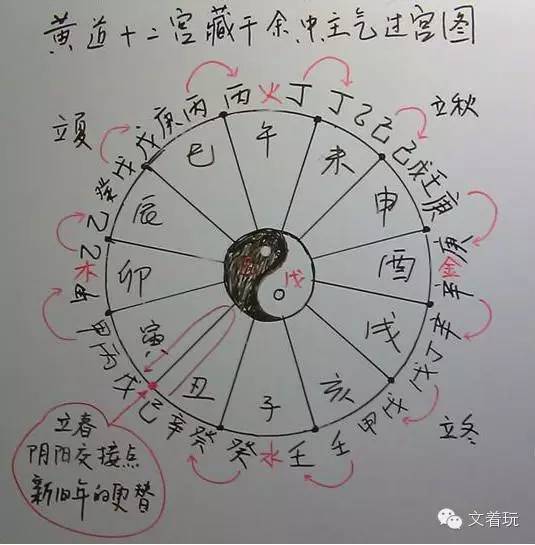 黄道十二宫藏干余中主气过宫图
立夏
立秋
丙火丁
丁乙己
己戊壬庚
庚金辛
辛丁戊
戊甲壬
壬水癸
癸辛己
戊丙甲
甲木乙
乙癸戊
戊庚丙
午
未
申
酉
戌
亥
子
丑
寅
卯
辰
巳
己
戊
立冬
立春
阴阳交接点
新旧年的更替
文着玩